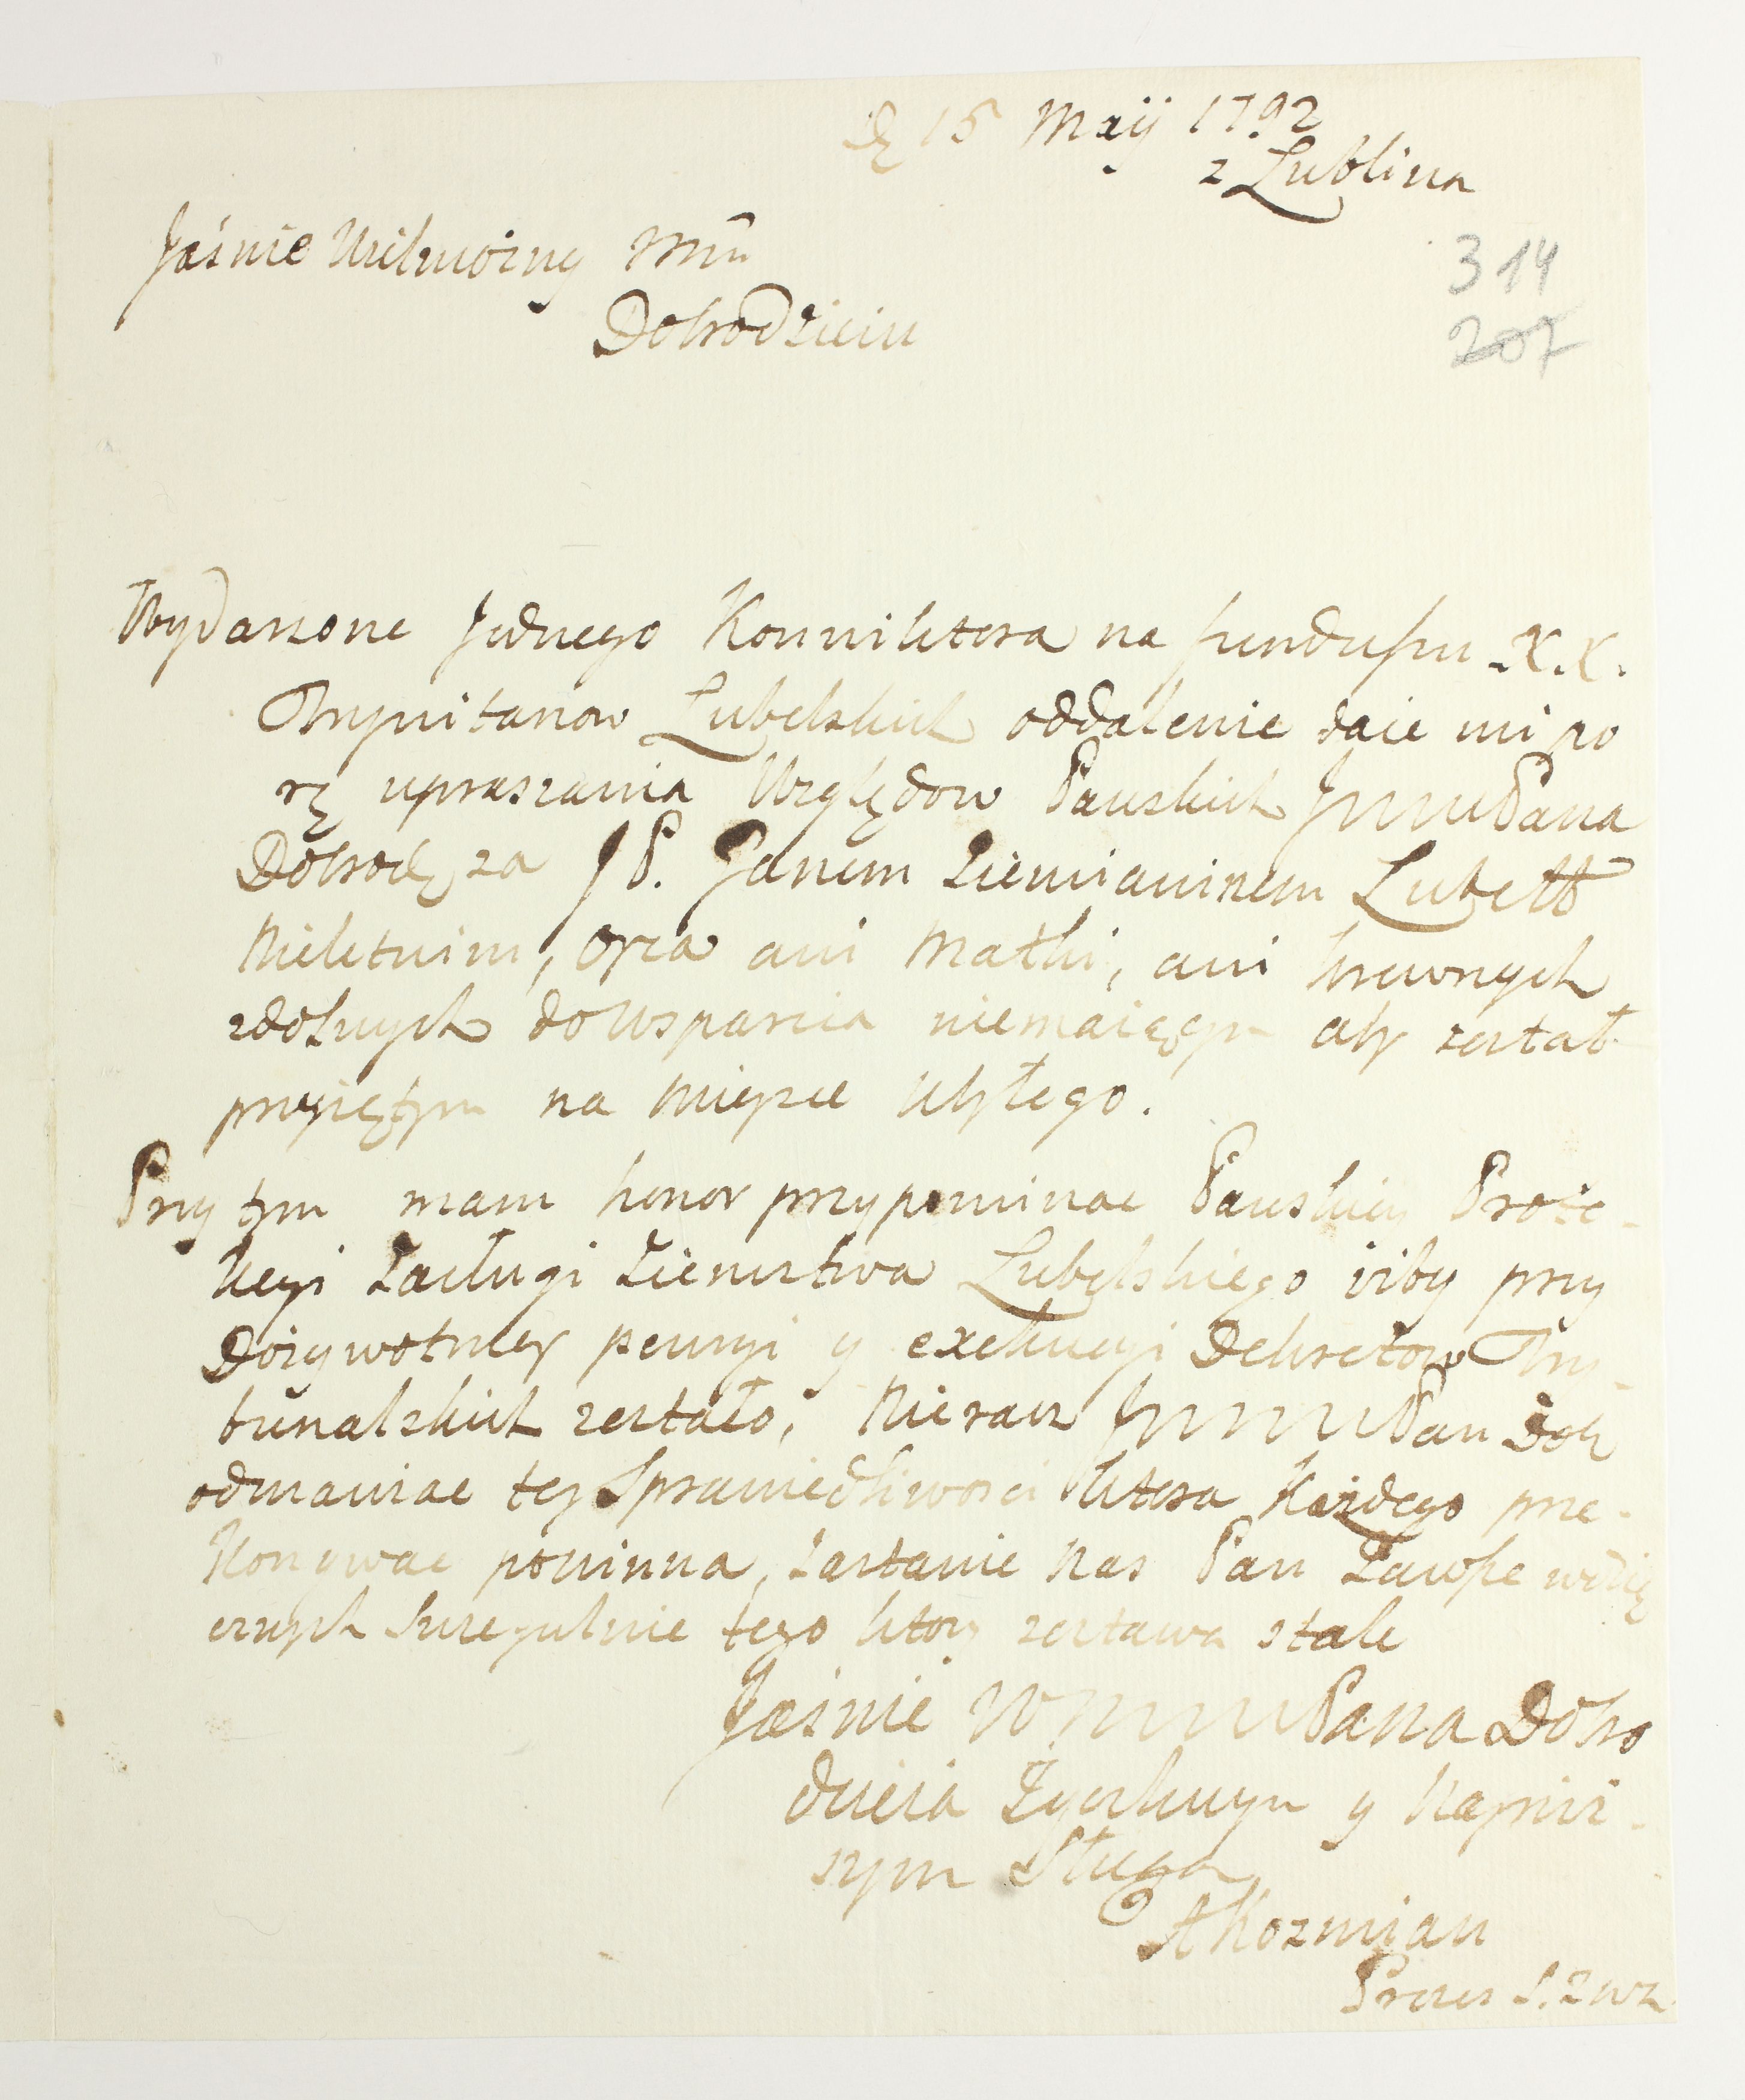 D 15 Maij 1792
z Lublina
Jaśnie Wielmożny Mći
Dobrodzieiu
314
207
Wydarzone Jednego Konwiktora na funduszu X.X.
Trynitarzow Lubelskich oddalenie daie mi po
rę upraszania Względow Pańskich JWWMPana
Dobrodz za JP. Janem Ziemianinem Lubell
Nieletnim, Oyca ani Matki, ani krewnych
zdolnych do Wsparcia niemaiącym aby został
przyiętym na Mieysce Ubyłego.
Przy tym mam honor przypominac Panskiey Prote-
kcyi Zasługi Ziemstwa Lubelskiego iżby przy
Dożywotney pensyi y exekucyi Dekretow Try-
bunalskich zostało, Nieracz Pan Dob
odmawiac tey Sprawiedliwosci ktora Każdego prze-
konywac powinna, zastanie nas Pan Zawsze wdzię
cznych szczegulnie tego ktory zostawa stale
Jaśnie WWMPana Dobro
dzieia Zyczliwym y Nayniż-
szym Sługą
AKozmian
Prezes S. Z. W. L.